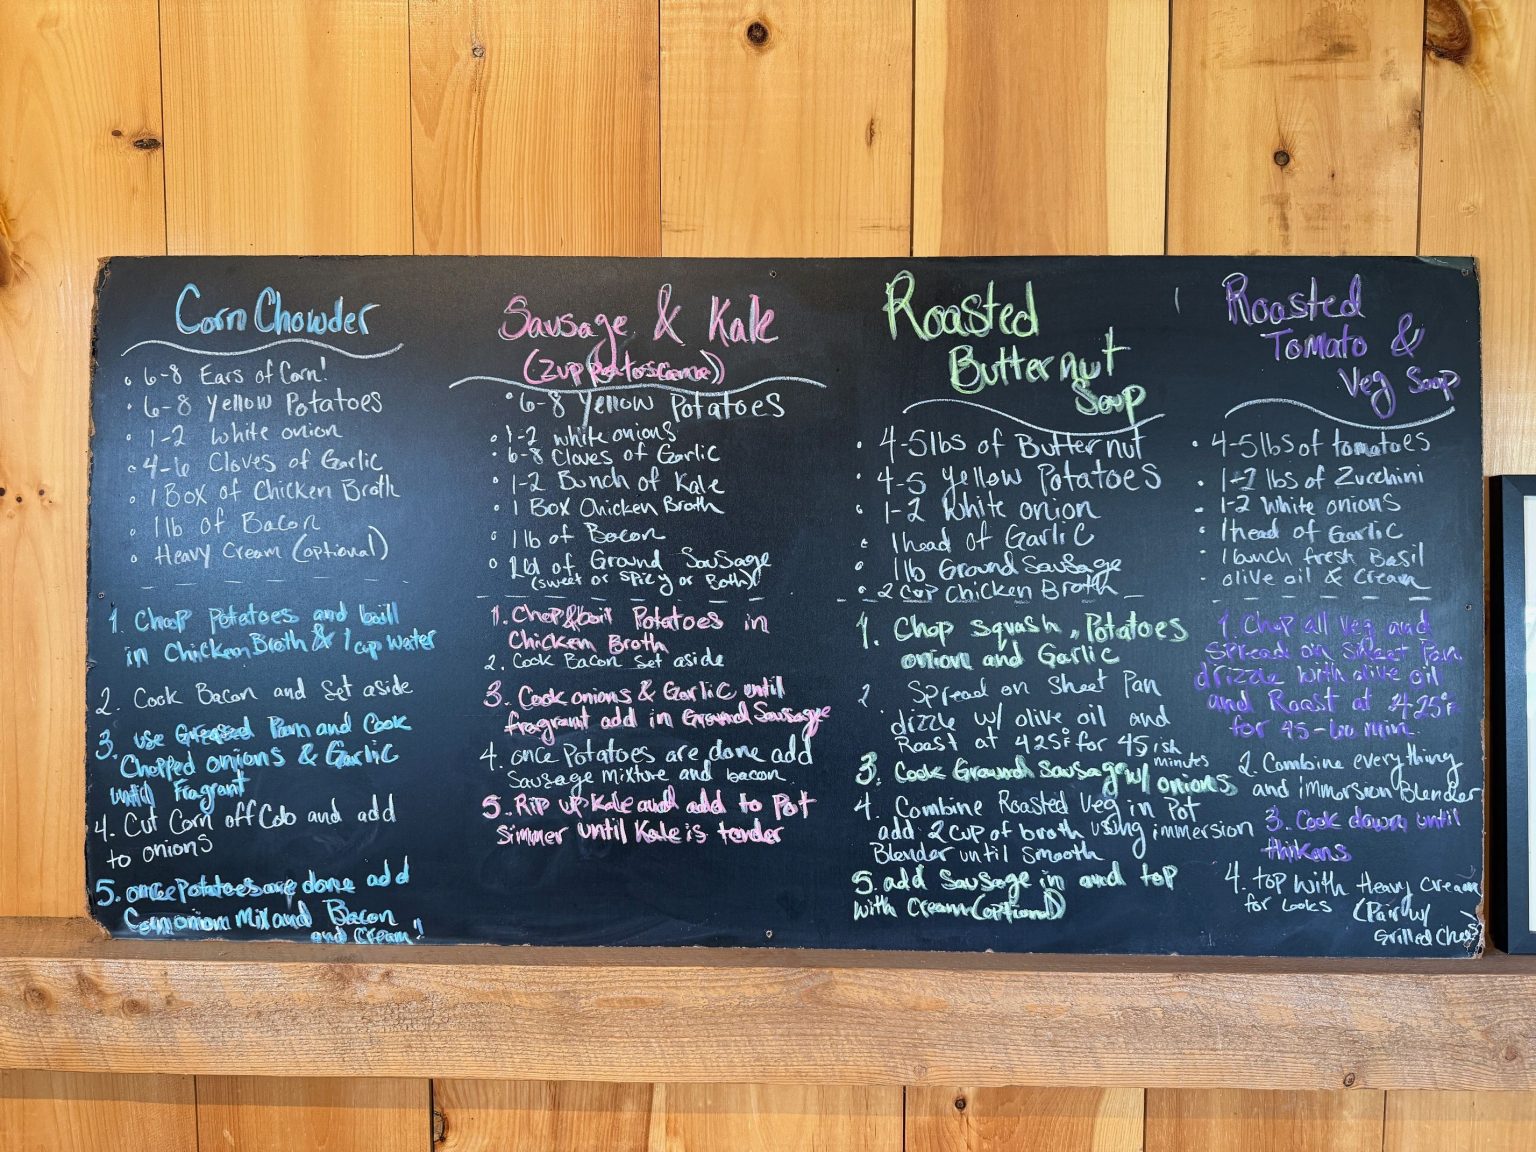 Corn Chowder
• 6-8 Ears of Corn!
• 6-8 Yellow Potatoes
• 1-2 White onion
• 4-6 Cloves of Garlic
• 1 Box of Chicken Broth
• 1 lb of Bacon
• Heavy Cream (optional)
1. Chop Potatoes and boil
in Chicken Broth & 1 cup water
2. Cook Bacon and Set aside
3. use Greased Pan and Cook
Chopped onions & Garlic
until fragrant
4. Cut Corn off Cob and add
to onions
5. once Potatoes are done add
Corn onion Mix and Bacon
and Cream!
Sausage & Kale
(Zuppa
• 6-8 Yellow Potatoes
• 1-2 white onions
• 6-8 Cloves of Garlic
• 1-2 Bunch of Kale
• 1 Box Chicken Broth
• 1 lb of Bacon
• of Ground Sausage
(sweet or spicy or Both)
1. Chop & boil Potatoes in
Chicken Broth
2. Cook Bacon Set aside
3. Cook onions & Garlic until
fragrant add in Ground Sausage
4. once Potatoes are done add
Sausage mixture and bacon
5. Rip up Kale and add to Pot
Simmer until Kale is tender
Roasted
Butternut
Soup
• 4-5lbs of Butternut
• 4-5 Yellow Potatoes
• 1-2 White onion
• 1 head of Garlic
• 1 lb Ground Sausage
• 2 cup Chicken Broth
1. Chop squash, Potatoes
onion and Garlic
2 Spread on Sheet Pan
dizzle w/ olive oil and
Roast at 425°F for 45ish
minutes
3. Cook Ground Sausage w/ onions
4. Combine Roasted Veg in Pot
add 2 cup of broth using immersion
Blender until Smooth
5. add Sausage in and top
with Cream (optional)
Roasted
Tomato &
Veg Soup
• 4-5lbs of tomatoes
• 1-2 lbs of Zucchini
• 1-2 White onions
• 1 head of Garlic
• 1 bunch fresh Basil
• olive oil & Cream
1. Chop all Veg and
Spread on Sheet Pan
drizzle with olive oil
and Roast at 425°F
for 45-60 min.
2. Combine everything
and immersion Blender
3. Cook down until
thikans
4. top with Heavy Cream
for Looks (Pair w/
Grilled Chees)